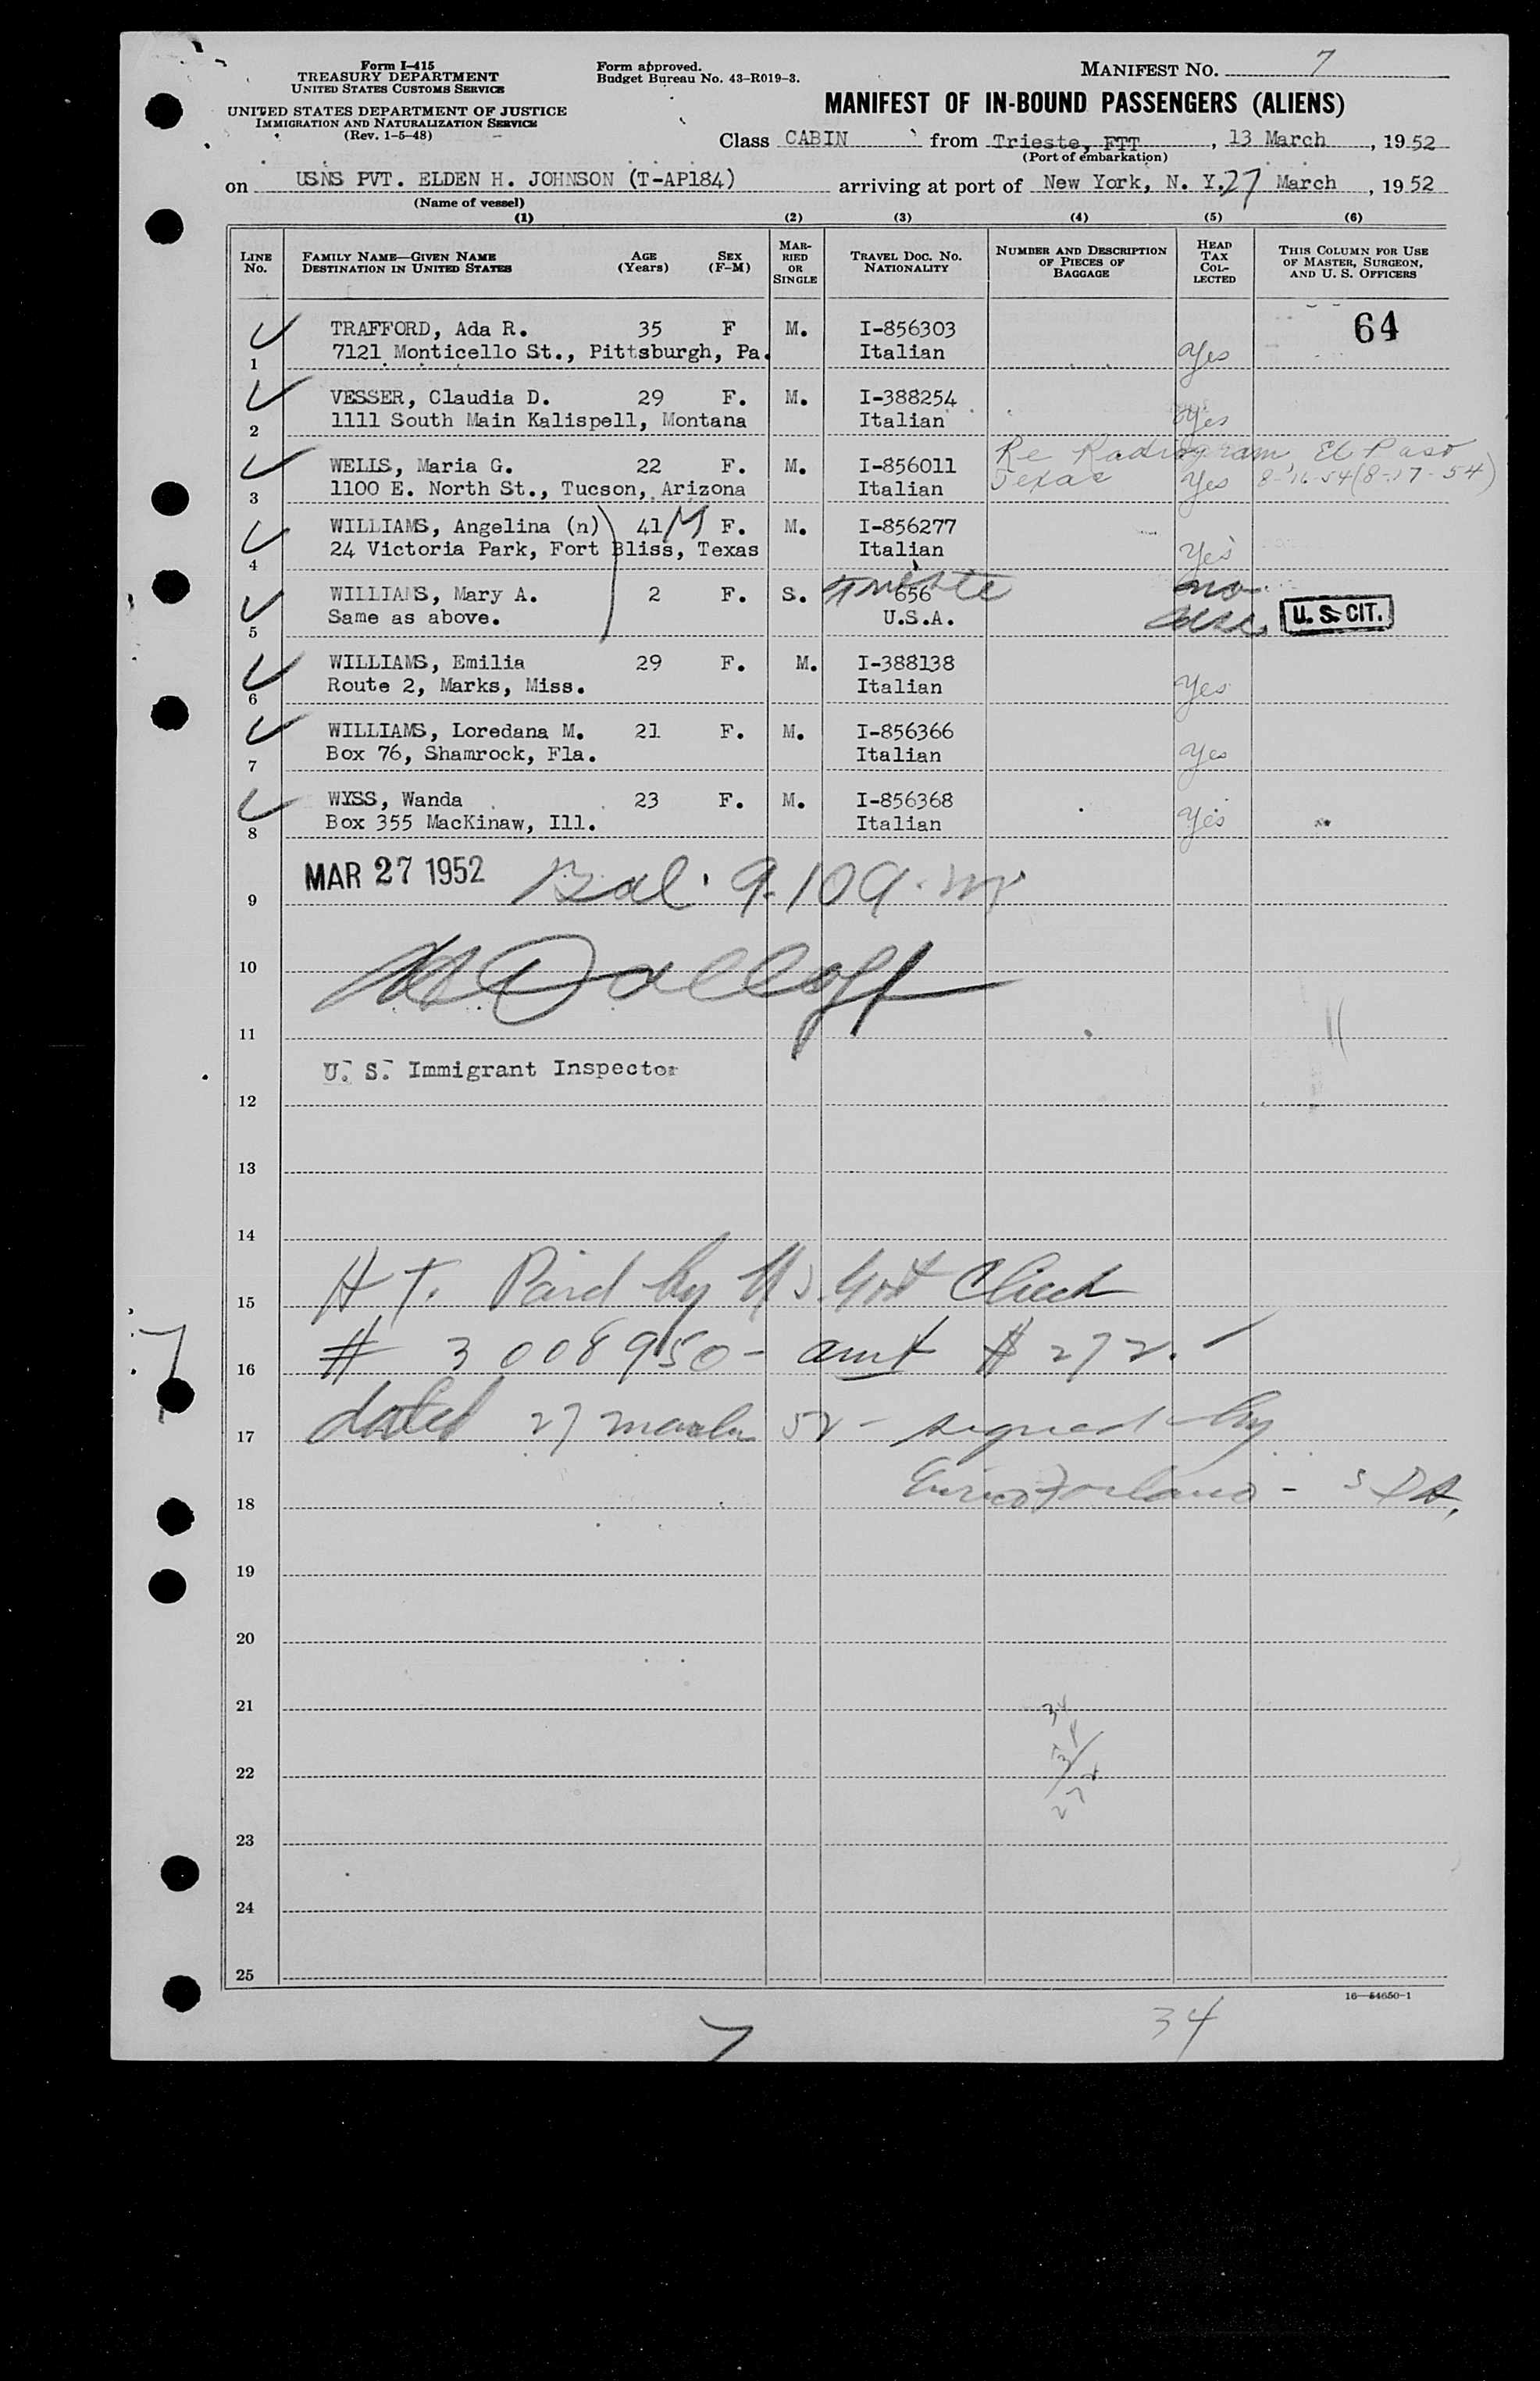 Form I-415
TREASURY DEPARTMENT
UNITED STATES CUSTOMS SERVICE
UNITED STATES DEPARTMENT OF JUSTICE
IMMIGRATION AND NATURALIZATION SERVICE
(Rev. 1-5-48)
Form approved.
Budget Bureau No. 43-R019-3.
MANIFEST NO. 7
MANIFEST OF IN-BOUND PASSENGERS (ALIENS)
Class CABIN from Trieste, FTT, 13 March, 1952
(Port of embarkation)
on USNS PVT. ELDEN H. JOHNSON (T-AP184) arriving at port of New York, N. Y. 27 March, 1952
(Name of vessel)
(1) (2) (3) (4) (5) (6)
LINE No. FAMILY NAME—GIVEN NAME DESTINATION IN UNITED STATES AGE (Years) SEX (F-M) MARRIED OR SINGLE TRAVEL DOC. NO. NATIONALITY NUMBER AND DESCRIPTION OF PIECES OF BAGGAGE HEAD TAX COLLECTED THIS COLUMN FOR USE OF MASTER, SURGEON, AND U. S. OFFICERS
TRAFFORD, Ada R. 35 F M. I-856303 64
1 7121 Monticello St., Pittsburgh, Pa. Italian Yes
VESSER, Claudia D. 29 F. M. I-388254
2 1111 South Main Kalispell, Montana Italian Yes
Re Radiogram, El Paso
WELLS, Maria G. 22 F. M. I-856011
3 1100 E. North St., Tucson, Arizona Italian Texas Yes 8-16-54 (8-17-54)
WILLIAMS, Angelina (n) 41 M F. M. I-856277
4 24 Victoria Park, Fort Bliss, Texas Italian Yes
WILLIAMS, Mary A. 2 F. S. Trieste 656 no
5 Same as above. U.S.A. U. S. CIT.
WILLIAMS, Emilia 29 F. M. I-388138
6 Route 2, Marks, Miss. Italian Yes
WILLIAMS, Loredana M. 21 F. M. I-856366
7 Box 76, Shamrock, Fla. Italian Yes
WYSS, Wanda 23 F. M. I-856368
8 Box 355 MacKinaw, Ill. Italian Yes
MAR 27 1952
9
10
11
U. S. Immigrant Inspector
12
13
14
15 H T. Paid by US. Govt Check
16 # 3008950 - amt $272.
17 dated 27 March 52 - signed by
18
19
20
21 34
22
272
23
24
25
16—54650-1
7 34